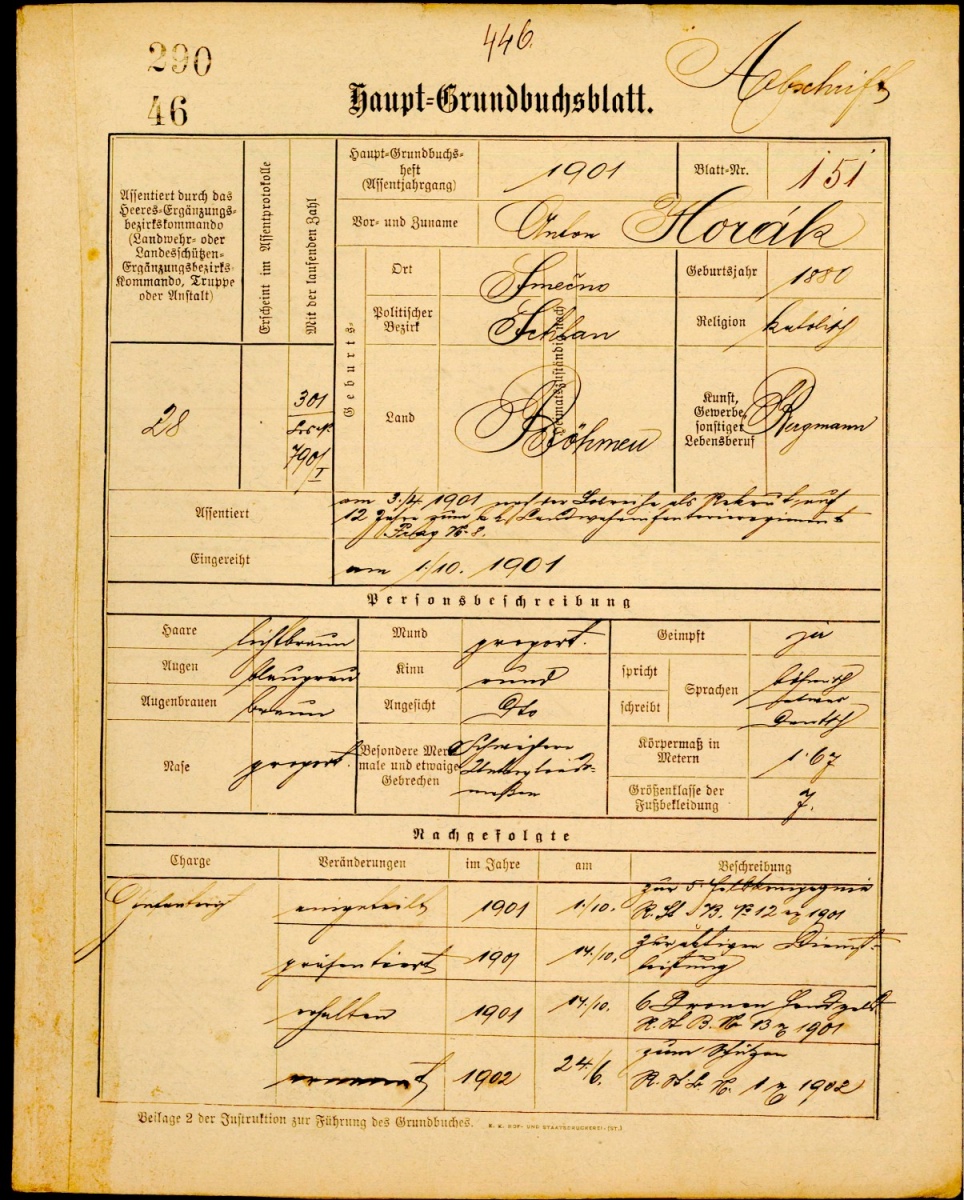 290
46
446.
Abschrift
Haupt-Grundbuchsblatt.
Assentiert durch das
Heeres-Ergänzungs-
bezirkskommando
(Landwehr- oder
Landesschützen-
Ergänzungsbezirks-
Kommando, Truppe
oder Anstalt)
Erscheint im Assentprotokolle
Mit der laufenden Zahl
28
301
7901
I
Haupt-Grundbuchs-
heft
(Assentjahrgang)
1901
Blatt-Nr.
151
Vor- und Zuname
Anton Horák
Geburts-
Ort
Smečno
Politischer
Bezirk
Schlan
Land
Böhmen
Heimatszuständig nach
Geburtsjahr
1880
Religion
katolisch
Kunst,
Gewerbe,
sonstiger
Lebensberuf
Bergmann
Assentiert
am 3./4. 1901 nach der Losreihe als Rekrut auf
12 Jahre zum k. k. Landwehrinfanterieregiment
Prag Nr. 8.
Eingereiht
am 1./10. 1901
Personsbeschreibung
Haare
lichtbraun
Augen
blaugrau
Augenbrauen
braun
Nase
proport.
Mund
proport.
Kinn
rund
Angesicht
Dto
Besondere Merk-
male und etwaige
Gebrechen
Geimpft
ja
spricht
schreibt
Sprachen
böhmisch
etwas
Deutsch
Körpermaß in
Metern
1·67
Größenklasse der
Fußbekleidung
7.
Nachgefolgte
Charge
Veränderungen
im Jahre
am
Beschreibung
Infanterist
eingeteilt
1901
1./10.
zur 5. Feldkompagnie
1901
präsentiert
1901
14./10.
zur aktiven Dienst-
leistung
erhalten
1901
14./10.
6 Kronen Handgeld
1901
1902
24./6.
zum Schützen
1902
Beilage 2 der Instruktion zur Führung des Grundbuches.
K. K. HOF- UND STAATSDRUCKEREI.